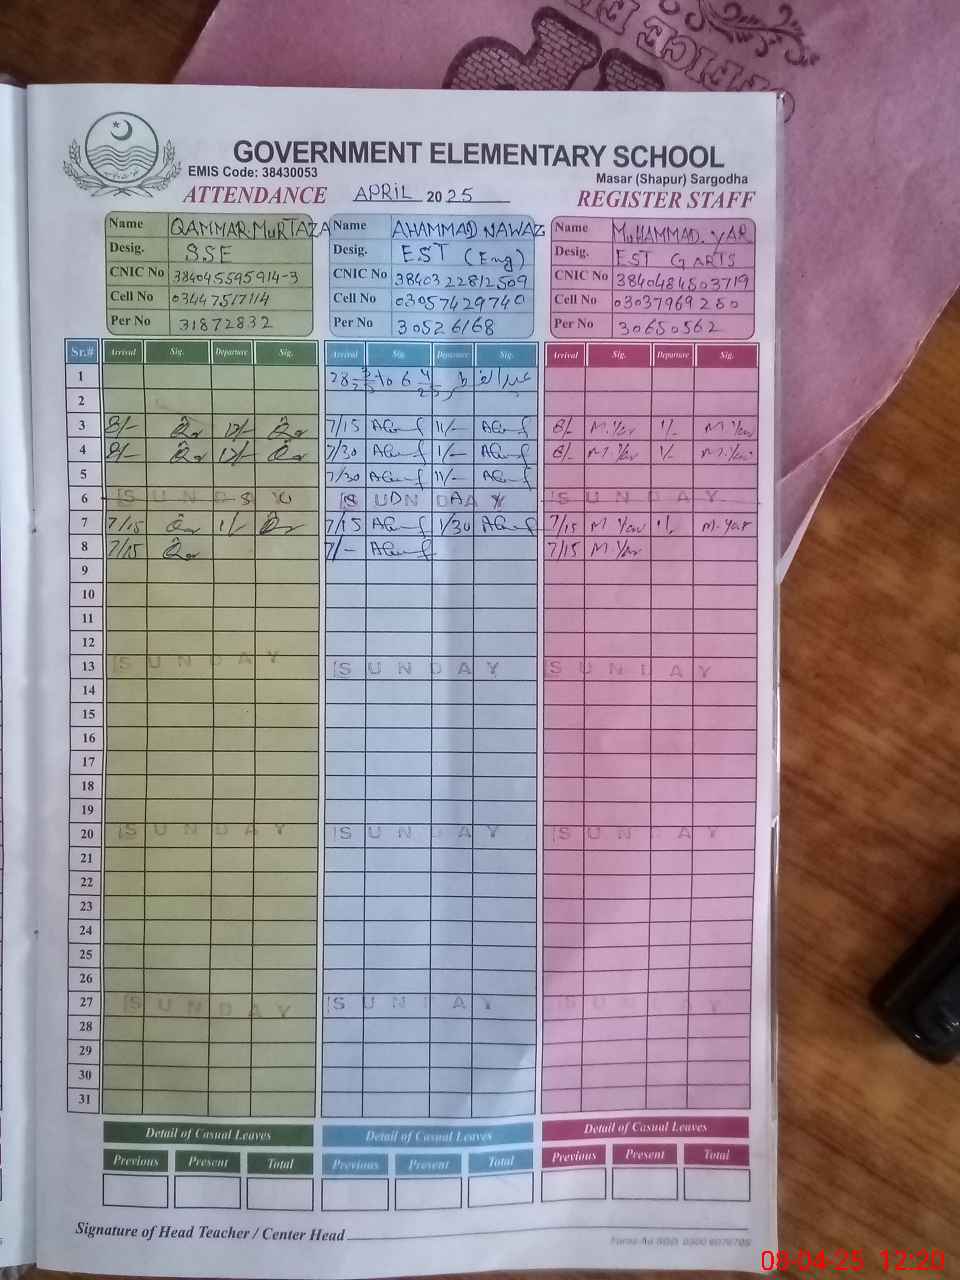 OFFICE
GOVERNMENT ELEMENTARY SCHOOL
EMIS Code: 38430053
Masar (Shapur) Sargodha
ATTENDANCE APRIL 2025 REGISTER STAFF
Name QAMMAR MURTAZA Name AHAMMAD NAWAZ Name MUHAMMAD YAR
Desig. SSE Desig. EST (Eng) Desig. EST G ARTS
CNIC No 384045595914-3 CNIC No 3840322812509 CNIC No 3840484803719
Cell No 03447517114 Cell No 03057429740 Cell No 03037969280
Per No 31872832 Per No 30526168 Per No 30650562
Sr.# Arrival Sig. Departure Sig. Arrival Sig. Departure Sig. Arrival Sig. Departure Sig.
1 28 3/25 to 6 4/25 عید الفطر
2
3 8/- 12/- 7/15 11/- 8/- M.Yar 1/- M.Yar
4 8/- 12/- 7/30 1/- 8/- M.Yar 1/- M.Yar
5 7/30 11/-
6 SUNDAY SUNDAY SUNDAY
7 7/15 1/- 7/15 1/30 7/15 M.Yar 1/- M.Yar
8 7/15 7/- 7/15 M.Yar
9
10
11
12
13 SUNDAY SUNDAY SUNDAY
14
15
16
17
18
19
20 SUNDAY SUNDAY SUNDAY
21
22
23
24
25
26
27 SUNDAY SUNDAY SUNDAY
28
29
30
31
Detail of Casual Leaves Detail of Casual Leaves Detail of Casual Leaves
Previous Present Total Previous Present Total Previous Present Total
Signature of Head Teacher / Center Head
08-04-25 12:20